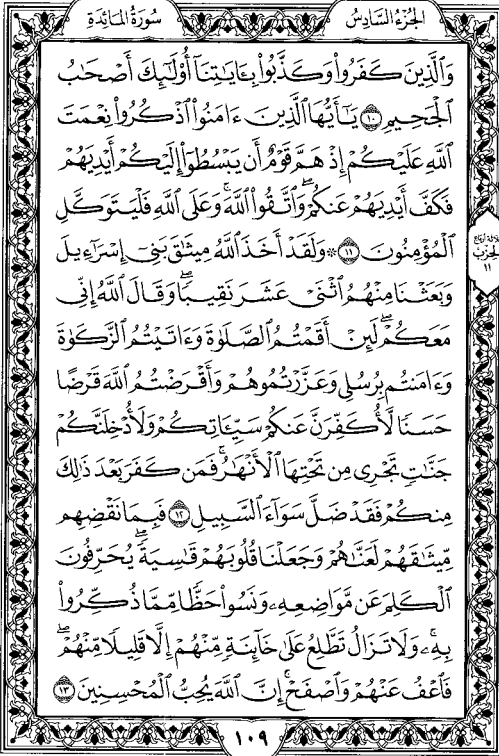 الجزء السادس
سورة المائدة
وَالَّذِينَ كَفَرُوا۟ وَكَذَّبُوا۟ بِـَٔايَٰتِنَآ أُو۟لَٰٓئِكَ أَصْحَٰبُ
ٱلْجَحِيمِ ١٠ يَٰٓأَيُّهَا ٱلَّذِينَ ءَامَنُوا۟ ٱذْكُرُوا۟ نِعْمَتَ
ٱللَّهِ عَلَيْكُمْ إِذْ هَمَّ قَوْمٌ أَن يَبْسُطُوٓا۟ إِلَيْكُمْ أَيْدِيَهُمْ
فَكَفَّ أَيْدِيَهُمْ عَنكُمْ ۖ وَٱتَّقُوا۟ ٱللَّهَ ۚ وَعَلَى ٱللَّهِ فَلْيَتَوَكَّلِ
ٱلْمُؤْمِنُونَ ١١ ۞ وَلَقَدْ أَخَذَ ٱللَّهُ مِيثَٰقَ بَنِىٓ إِسْرَٰٓءِيلَ
وَبَعَثْنَا مِنْهُمُ ٱثْنَىْ عَشَرَ نَقِيبًا ۖ وَقَالَ ٱللَّهُ إِنِّى
مَعَكُمْ ۖ لَئِنْ أَقَمْتُمُ ٱلصَّلَوٰةَ وَءَاتَيْتُمُ ٱلزَّكَوٰةَ
وَءَامَنتُم بِرُسُلِى وَعَزَّرْتُمُوهُمْ وَأَقْرَضْتُمُ ٱللَّهَ قَرْضًا
حَسَنًا لَّأُكَفِّرَنَّ عَنكُمْ سَيِّـَٔاتِكُمْ وَلَأُدْخِلَنَّكُمْ
جَنَّٰتٍ تَجْرِى مِن تَحْتِهَا ٱلْأَنْهَٰرُ ۚ فَمَن كَفَرَ بَعْدَ ذَٰلِكَ
مِنكُمْ فَقَدْ ضَلَّ سَوَآءَ ٱلسَّبِيلِ ١٢ فَبِمَا نَقْضِهِم
مِّيثَٰقَهُمْ لَعَنَّٰهُمْ وَجَعَلْنَا قُلُوبَهُمْ قَٰسِيَةً ۖ يُحَرِّفُونَ
ٱلْكَلِمَ عَن مَّوَاضِعِهِۦ ۙ وَنَسُوا۟ حَظًّا مِّمَّا ذُكِّرُوا۟
بِهِۦ ۚ وَلَا تَزَالُ تَطَّلِعُ عَلَىٰ خَآئِنَةٍ مِّنْهُمْ إِلَّا قَلِيلًا مِّنْهُمْ ۖ
فَٱعْفُ عَنْهُمْ وَٱصْفَحْ ۚ إِنَّ ٱللَّهَ يُحِبُّ ٱلْمُحْسِنِينَ ١٣
ثلاثة أرباع
الحزب
١١
١٠٩